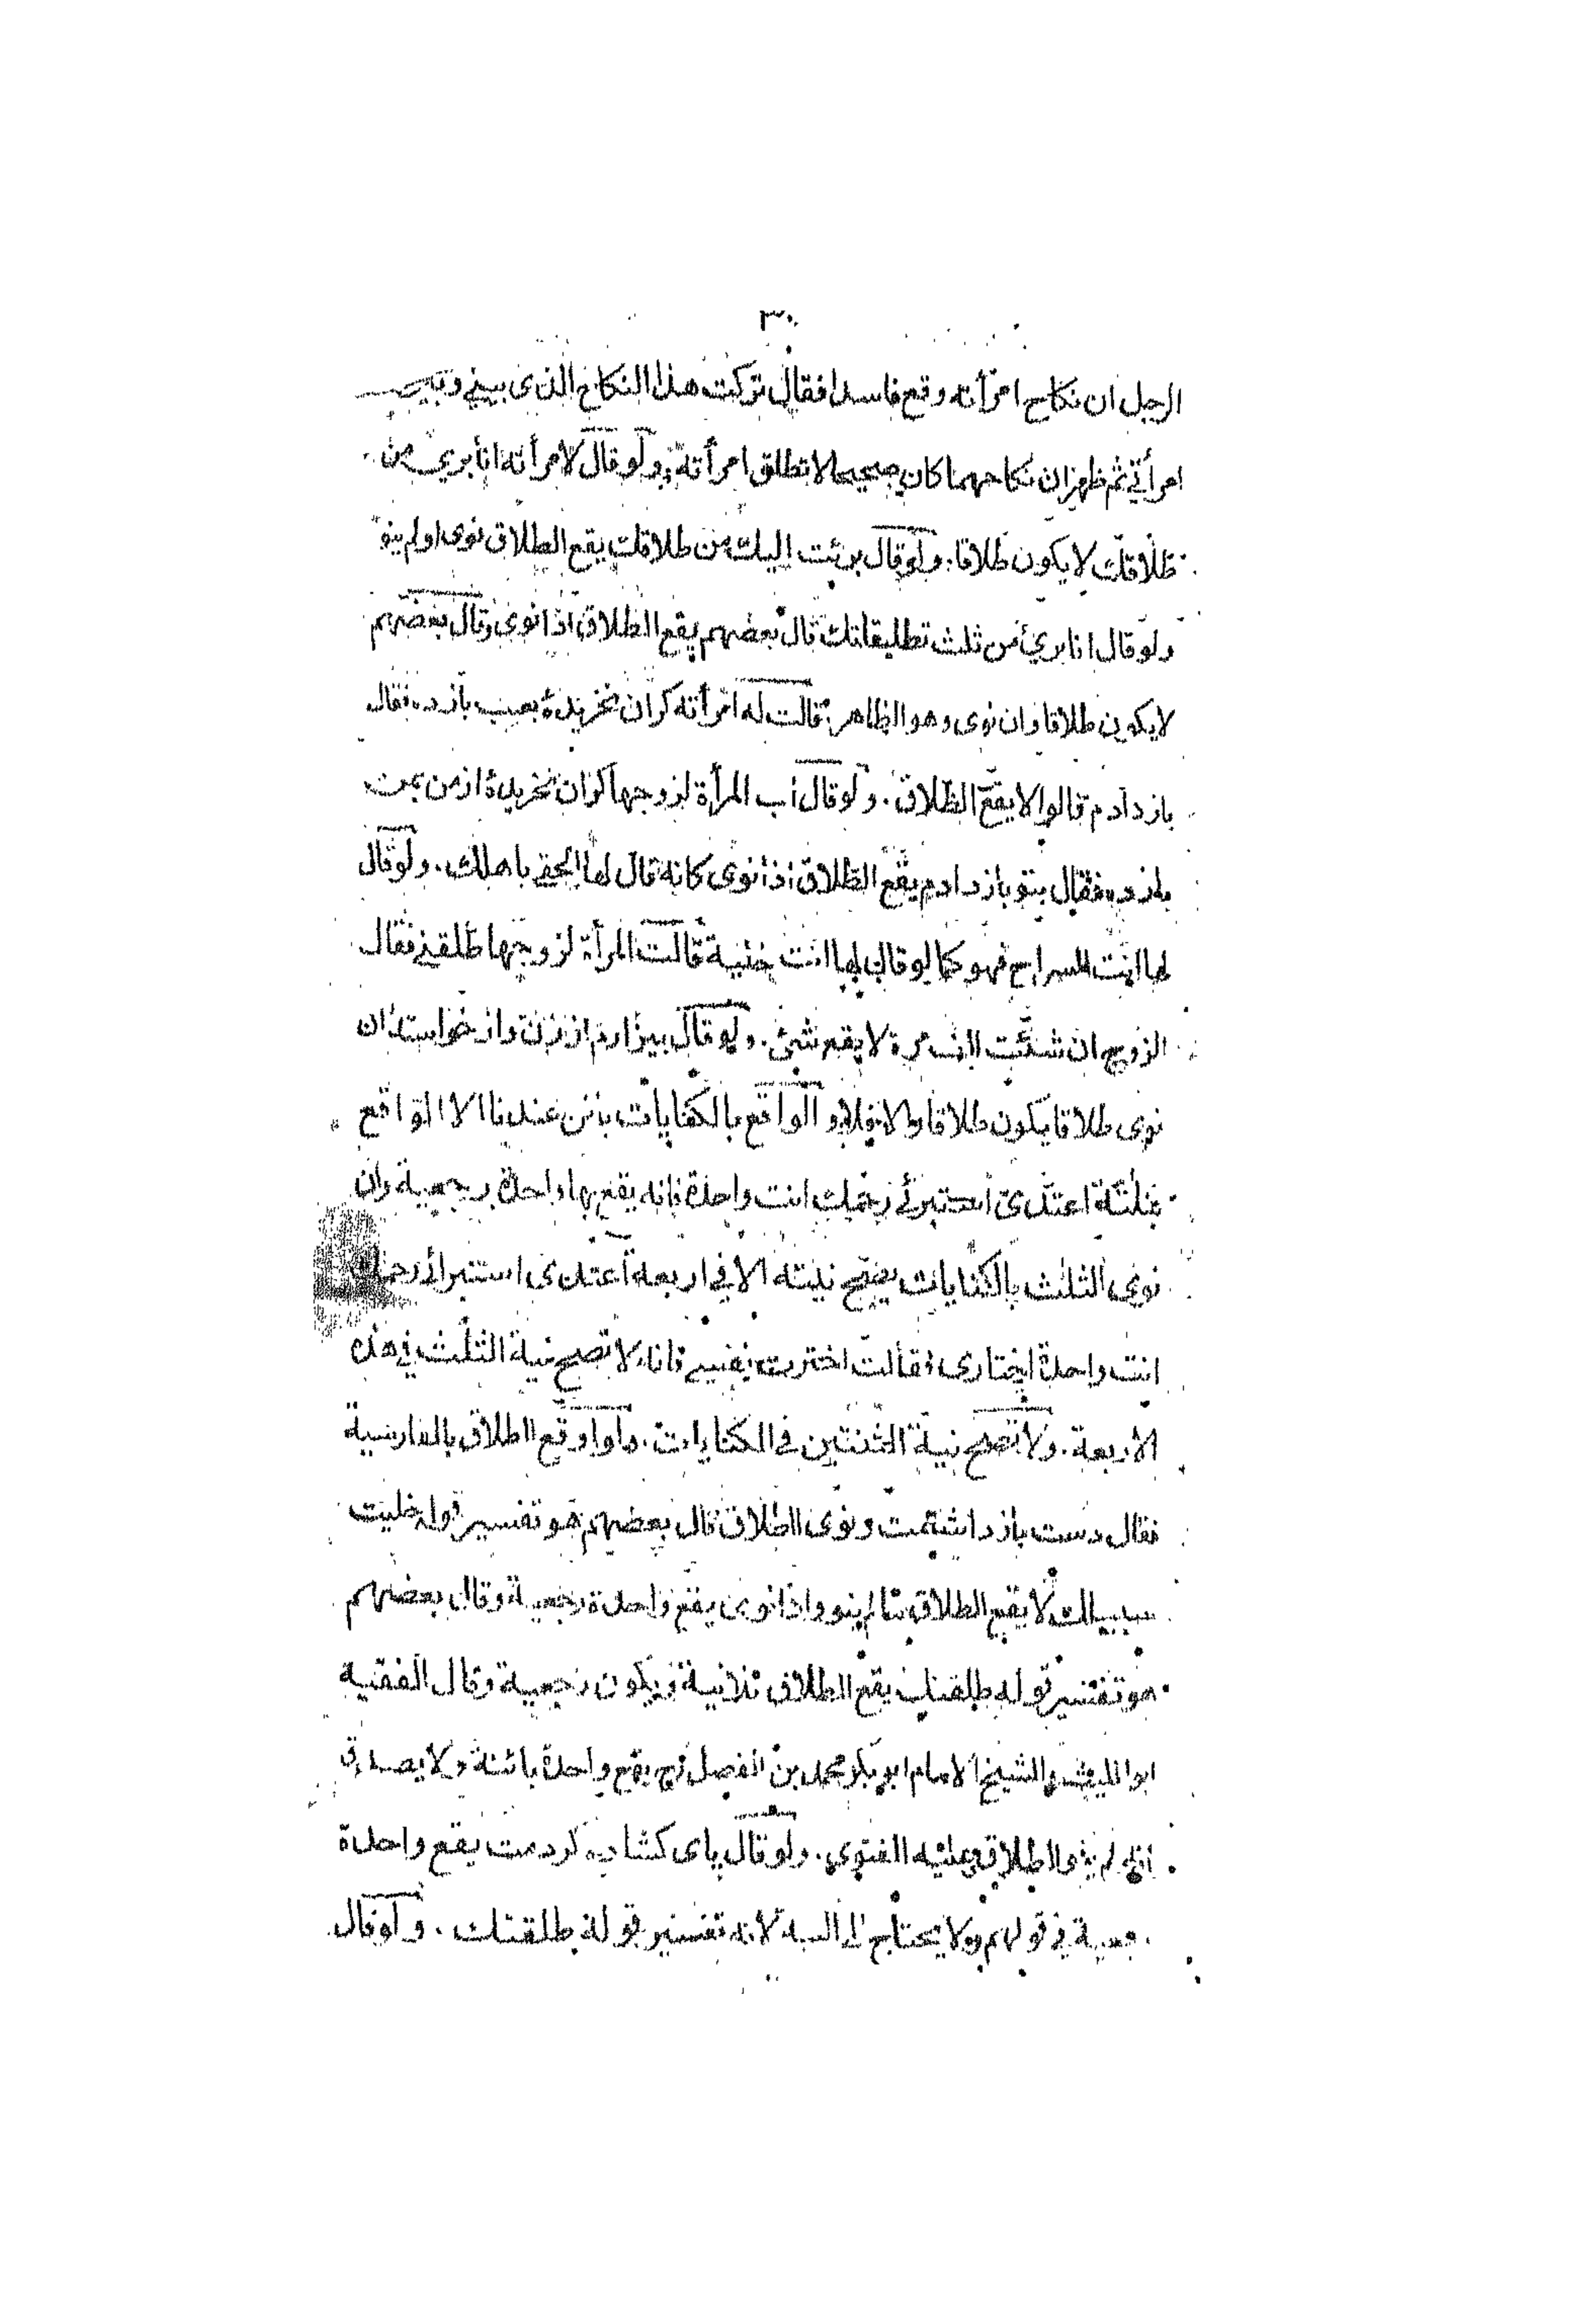 ٣٠
الرجل ان نكاح امرأته وقع فاسدا فقال تركت هذا النكاح الذى بينى وبين
امرأتى ثم ظهر ان نكاحهما كان صحيحا لا تطلق امرأته ولو قال لامرأته انا برى من
طلاقك لا يكون طلاقا. ولو قال برئت اليك من طلاقك يقع الطلاق نوى او لم ينو
ولو قال انا برئ من ثلث تطليقاتك قال بعضهم يقع الطلاق اذا نوى وقال بعضهم
لا يكون طلاقا وان نوى وهو الظاهر. قالت له امرأته كران بخريدۀ بعيب بازده فقال
باز دادم قالوا لا يقع الطلاق. ولو قال اب المرأة لزوجها كران بخريدۀ از من بمن
بازده فقال بتو باز دادم يقع الطلاق اذا نوى كانه قال لها الحقى باهلك. ولو قال
لها انت السراح فهو كما لو قال لها انت خلية قالت المرأة لزوجها طلقنى فقال
الزوج ان شئت الف مرة لا يقع شئ. ولو قال بيزارم از زن واز خواسته ان
نوى طلاقا يكون طلاقا والا فلا و الواقع بالكنايات بائن عندنا الا الواقع
بثلثة اعتدى استبرئى رحمك انت واحدة فانه يقع بها واحدة رجعية وان
نوى الثلث بالكنايات يصح نيته الا فى اربعة اعتدى استبرئى رحمك
انت واحدة اختارى فقالت اخترت نفسى فانه لا تصح نية الثلث فى هذه
الاربعة. ولا تصح نية الثنتين فى الكنايات. ولو اوقع الطلاق بالفارسية
فقال دست باز داشتمت ونوى الطلاق قال بعضهم هو تفسير قوله خليت
سبيلك لا يقع الطلاق ما لم ينو واذا نوى يقع واحدة رجعية وقال بعضهم
هو تفسير قوله طلقتك يقع الطلاق بلا نية ويكون رجعية وقال الفقيه
ابو الليث والشيخ الامام ابو بكر محمد بن الفضل رح يقع واحدة بائنة ولا يصدق
انه لم ينو الطلاق وعليه الفتوى. ولو قال پاى كشاده كردمت يقع واحدة
رجعية فى قولهم ولا يحتاج الى النية لانه تفسير قوله طلقتك. ولو قال